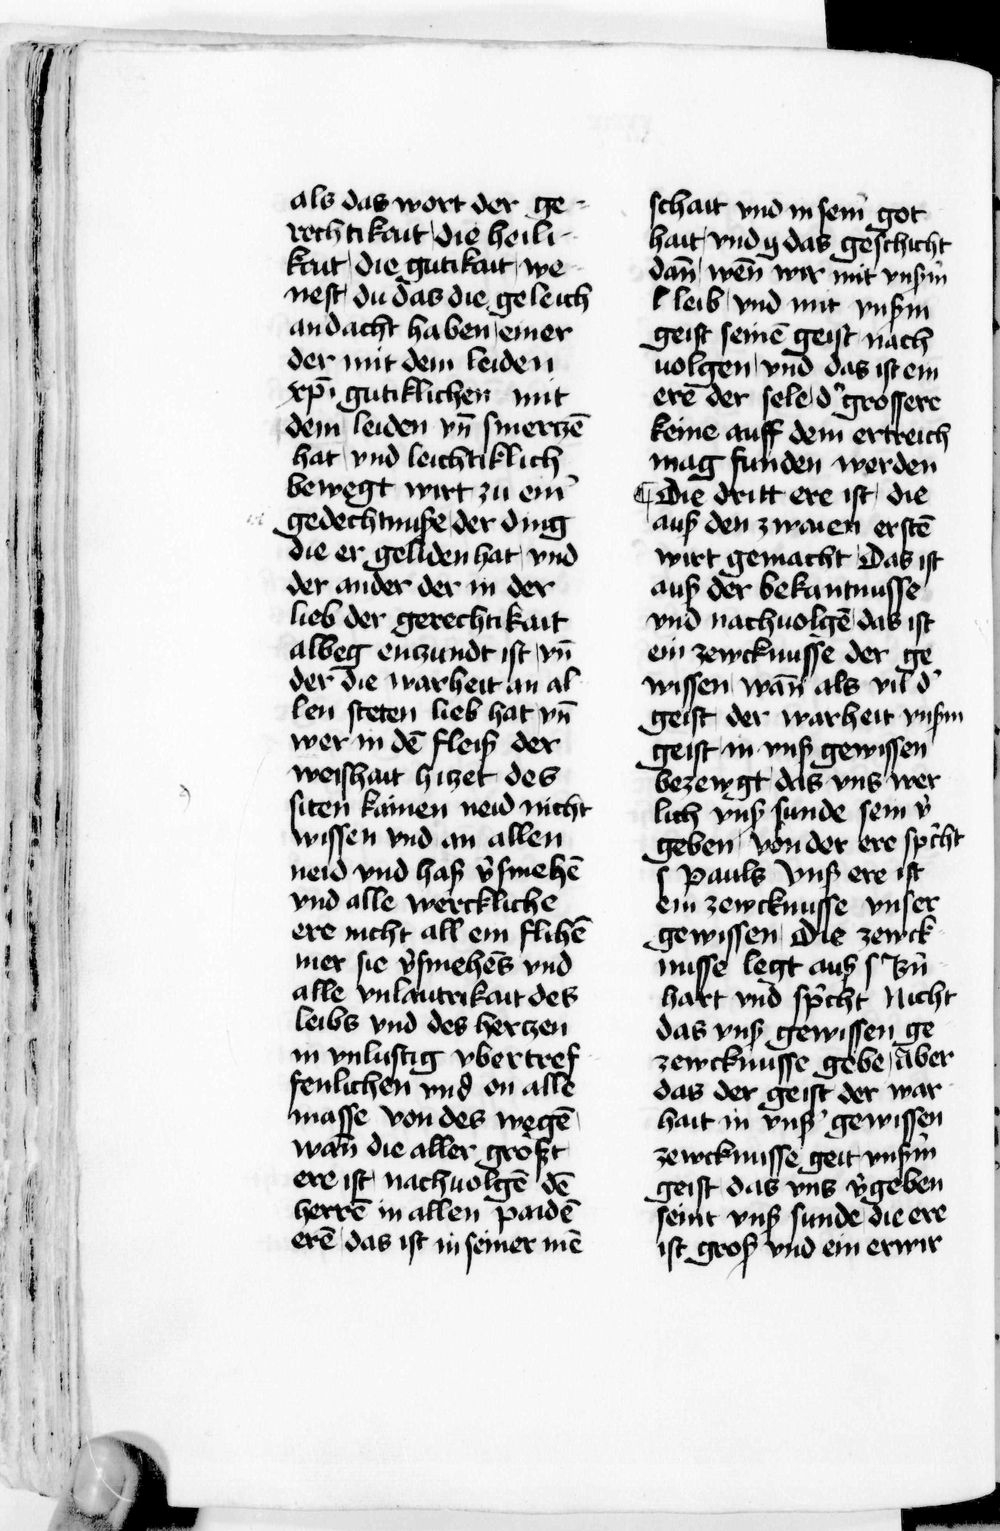 als das wort der ge-
rechtikait die heili-
kait die gutikait we
nest du das die geleich
andacht haben einer
der mit dem leiden
xp̄i gutiklichen mit
dem leiden vn̄ smertzē
hat vnd leichtiklich
bewegt wirt zu eim̄
gedechtnuße der ding
die er geliden hat vnd
der ander der in der
lieb der gerechtikait
albeg entzundt ist vn̄
der die warheit an al
len steten lieb hat vn̄
wer in dē fleiß der
weishait hitzet des
siten kainen neid nicht
wissen vnd an allen
neid vnd haß v̄smehē
vnd alle werckliche
ere nicht all ein flihē
mer sie v̄smehēs vnd
alle vnlautrikait des
leibs vnd des hertzen
in vnlustig vbertref
fenlichen vnd on alle
masse von des wegē
wan̄ die aller größt
ere ist nachuolgē dē
herrē in allen paidē
erē das ist in seiner mē
schait vnd in sein̄ got
hait vnd y das geschicht
dan̄ wen̄ wir mit vnßm̄
l leib vnd mit vnßm
geist seinē geist nach
uolgen vnd das ist ein
erē der sele d' grossere
keine auff dem ertreich
mag funden werden
¶ Die dritt ere ist die
auß den zwaien erstē
wirt gemacht Das ist
auß der bekantnusse
vnd nachuolgē das ist
ein zewcknusse der ge
wissen wan̄ als vil d'
geist der warheit vnßm
geist in vnß gewissen
bezewgt das vns wer
lich vnß sunde sein v̄
geben von der ere sp̄cht
s pauls Vnß ere ist
ein zewcknusse vnser
gewissen Die zewck
nusse legt auß s' Bn̄
hart vnd sp̄cht Nicht
das vnß gewissen ge
zewcknusse gebe aber
das der geist der war
hait in vnß' gewissen
zewcknusse geit vnßm̄
geist das vns v̄geben
seint vnß sunde die ere
ist groß vnd ein erwir